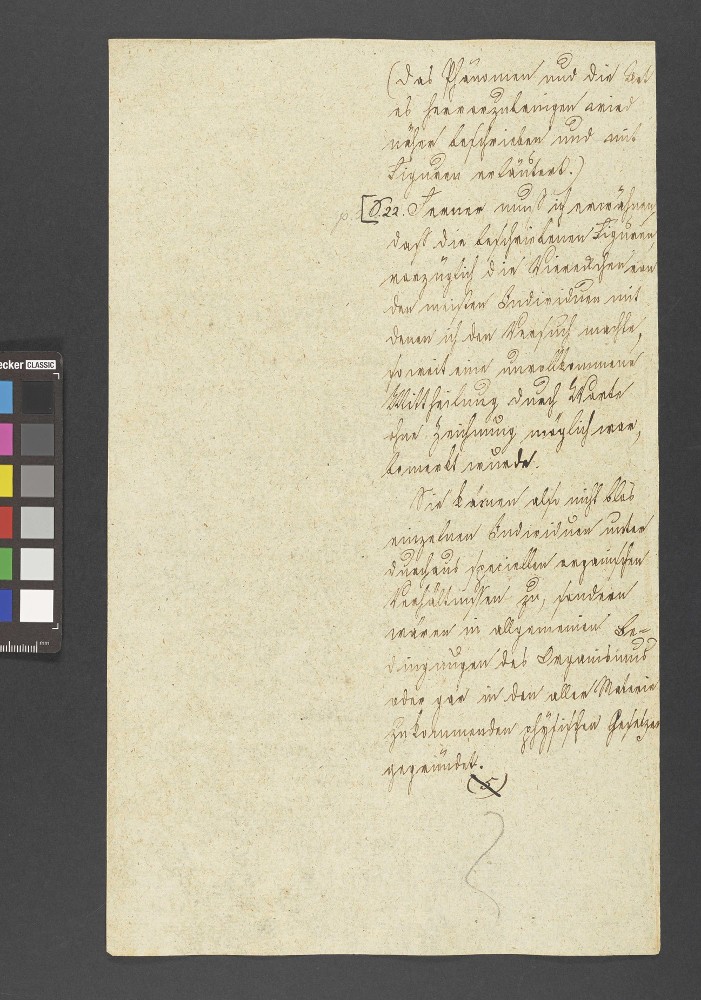 (Das Phänomen und die Art
es hervorzubringen wird
näher beschrieben und mit
Figuren erläutert.)
p. [S. 22. Ferner muß ich erwähnen,
daß die beschriebenen Figuren,
vorzüglich die Viereckchen von
den meisten Individuen mit
denen ich den Versuch machte,
so weit eine unvollkommene
Mittheilung durch Worte
ohne Zeichnung möglich war,
bemerkt wurde.
Sie kämen also nicht blos
einzelnen Individuen unter
durchaus speciellen organischen
Verhältnissen zu, sondern
wären in allgemeinen Be-
dingungen des Organismus
oder gar in den aller Materie
zukommenden physischen Gesetzen
gegründet.
(5)
ecker CLASSIC
mm